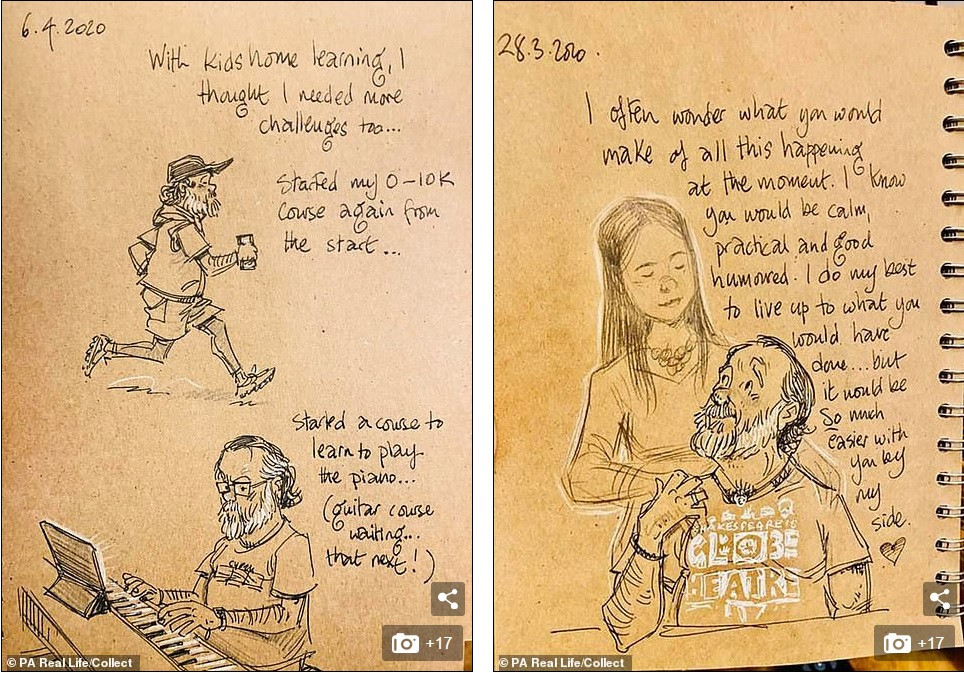 6.4.2020
With kids home learning, I
thought I needed more
challenges too...
Started my 0-10K
course again from
the start...
Started a course to
learn to play
the piano...
(guitar course
waiting...
that next!)
+17
© PA Real Life/Collect
28.3.2020.
I often wonder what you would
make of all this happening
at the moment. I know
you would be calm,
practical and good
humoured. I do my best
to live up to what you
would have
done...but
it would be
so much
easier with
you by
my
side.
SHAKESPEARE'S
GLOBE
THEATRE
+17
© PA Real Life/Collect